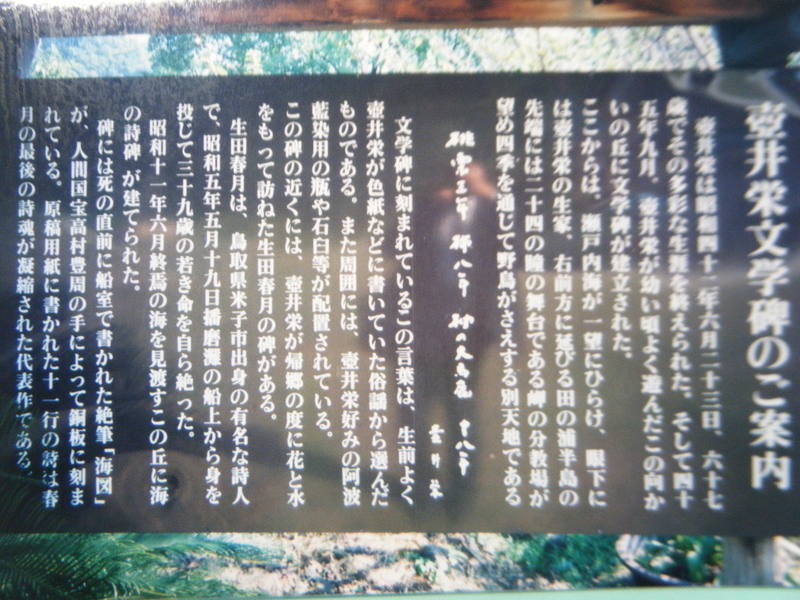 壺井栄文学碑のご案内
壺井栄は昭和四十二年六月二十三日、六十七
歳でその多彩な生涯を終えられた。そして四十
五年九月、壺井栄が幼い頃よく遊んだこの向か
いの丘に文学碑が建立された。
ここからは、瀬戸内海が一望にひらけ、眼下に
は壺井栄の生家、右前方に延びる田の浦半島の
先端には二十四の瞳の舞台である岬の分教場が
望め四季を通じて野鳥がさえずる別天地である
桃栗三年 柿八年 柚の大馬鹿 十八年
壺井栄
文学碑に刻まれているこの言葉は、生前よく、
壺井栄が色紙などに書いていた俗謡から選んだ
ものである。また周囲には、壺井栄好みの阿波
藍染用の瓶や石臼等が配置されている。
この碑の近くには、壺井栄が帰郷の度に花と水
をもって訪ねた生田春月の碑がある。
生田春月は、鳥取県米子市出身の有名な詩人
で、昭和五年五月十九日播磨灘の船上から身を
投じて三十九歳の若き命を自ら絶った。
昭和十一年六月終焉の海を見渡すこの丘に海
の詩碑が建てられた。
碑には死の直前に船室で書かれた絶筆「海図」
が、人間国宝高村豊周の手によって銅板に刻ま
れている。原稿用紙に書かれた十一行の詩は春
月の最後の詩魂が凝縮された代表作である。